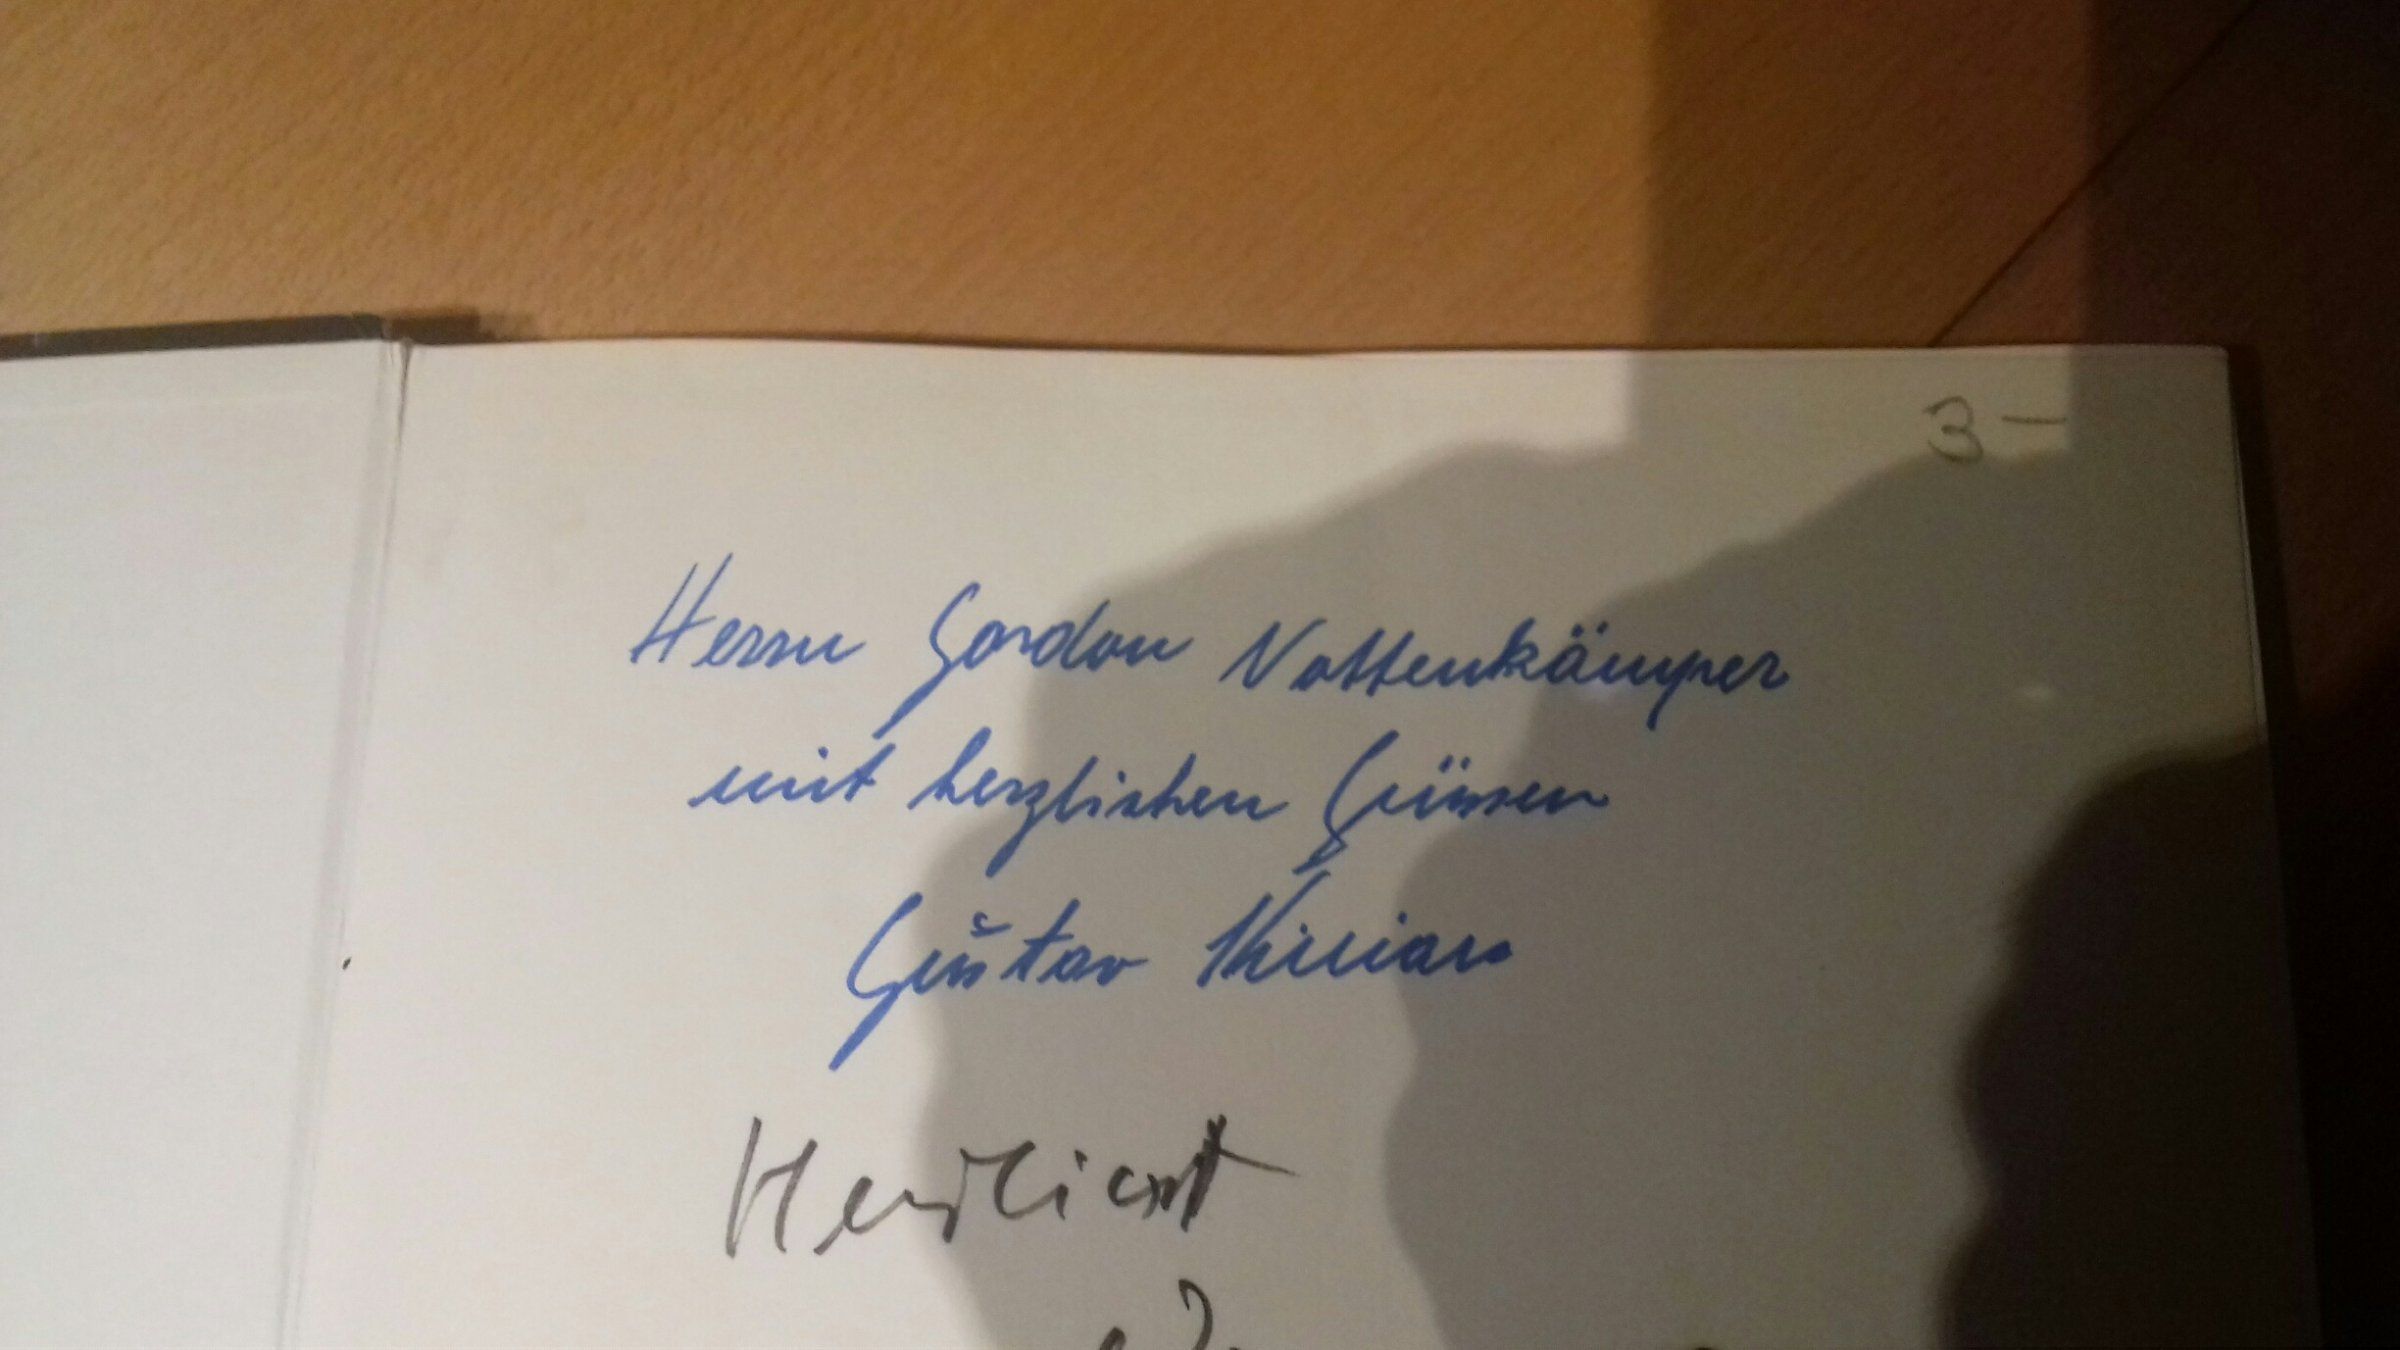 3 —
Herrn Gordon Nottenkämper
mit herzlichen Grüssen
Gustav Kilian
Herzlichst